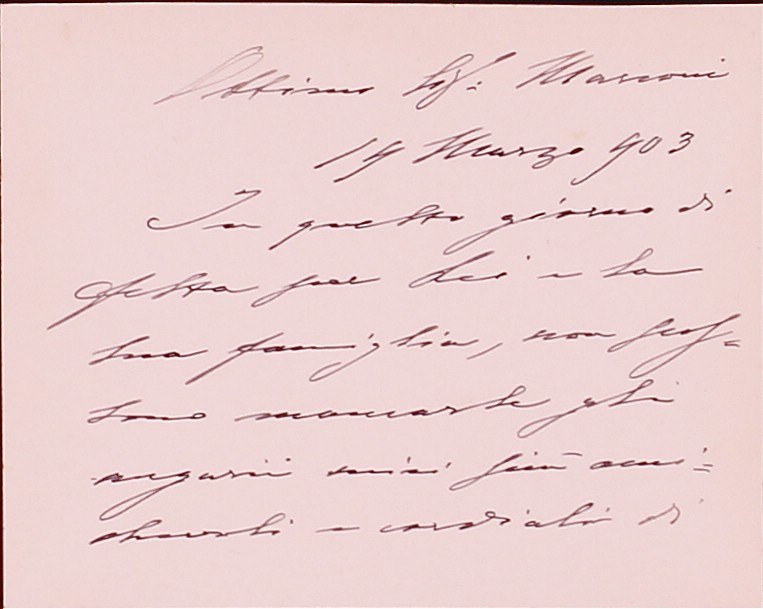 Ottimo Sigr: Marconi
19 Marzo 903
In questo giorno di
festa per Lei e la
sua famiglia, non pos=
sono mancarle gli
augurii miei più ami=
chevoli e cordiali di